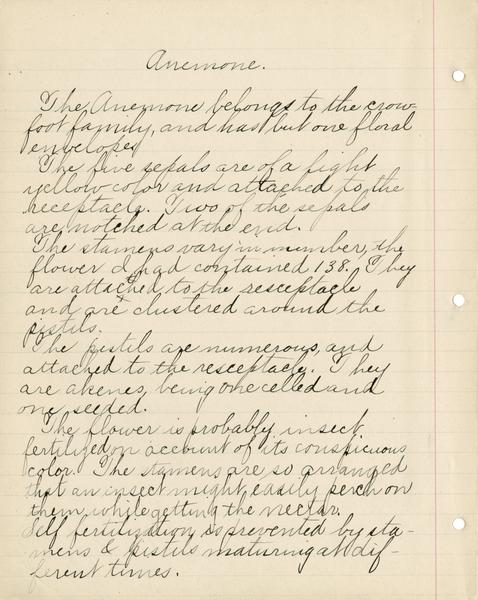 Anemone.
The Anemone belongs to the crow-
foot family, and has but one floral
envelope.
The five sepals are of a light
yellow color and attached to the
receptacle. Two of the sepals
are notched at the end.
The stamens vary in number, the
flower I had contained 138. They
are attached to the resceptacle
and are clustered around the
pistils.
The pistils are numerous, and
attached to the resceptacle. They
are akenes, being one celled and
one seeded.
The flower is probably insect
fertilized on account of its conspicuous
color. The stamens are so arranged
that an insect might easily perch on
them, while getting the nectar.
Self fertilization is prevented by sta-
mens & pistils maturing at dif-
ferent times.